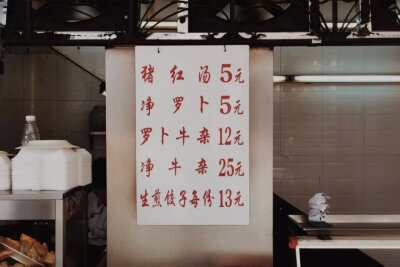 猪红汤5元
净罗卜5元
罗卜牛杂12元
净牛杂25元
生煎饺子每份13元